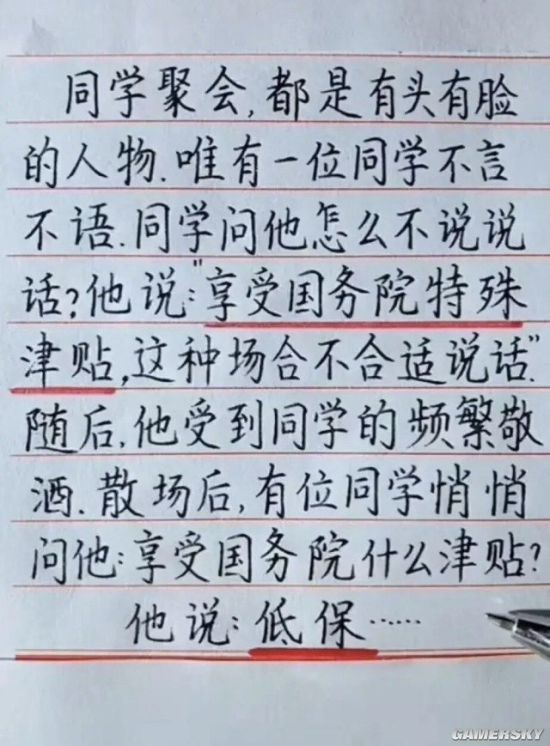 同学聚会,都是有头有脸
的人物.唯有一位同学不言
不语.同学问他怎么不说说
话?他说:"享受国务院特殊
津贴,这种场合不合适说话".
随后,他受到同学的频繁敬
酒.散场后,有位同学悄悄
问他:享受国务院什么津贴?
他说:低保……
GAMERSKY